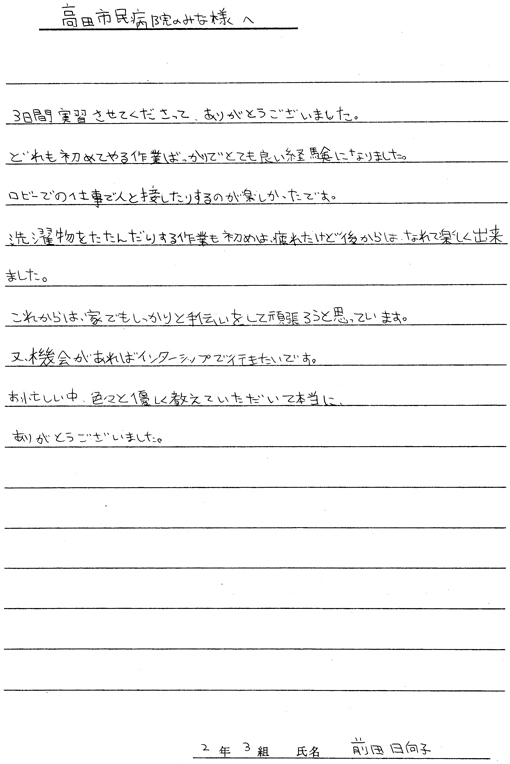 高田市民病院のみな様へ
3日間実習させてくださって、ありがとうございました。
どれも初めてやる作業ばっかりでとても良い経験になりました。
ロビーでの仕事で人と接したりするのが楽しかったです。
洗濯物をたたんだりする作業も初めは、疲れたけど後からは、なれて楽しく出来
ました。
これからは、家でもしっかりと手伝いをして頑張ろうと思っています。
又、機会があればインターシップで行きたいです。
お忙しい中、色々と優しく教えていただいて本当に、
ありがとうございました。
2年3組 氏名 前田日向子